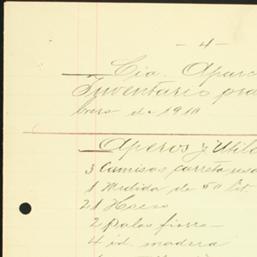 - 4 -
Cia. Aparc
Inventario pra
bero de 1910
Aperos y Utile
3 Camisas carreta usa
1 Medida de 50 lit
21 Hoces
2 Palas fierro
4 id madera